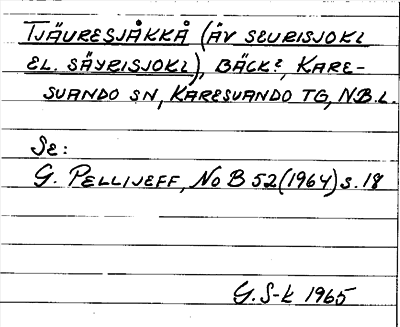 TJÄURESJÅKKÅ (ÄV SEURISJOKI
EL. SÄYRISJOKI), BÄCK?, KARE-
SUANDO SN, KARESUANDO TG, N.B.L.
Se:
G. PELLIJEFF, NoB 52 (1964) s. 18
G. S-k 1965